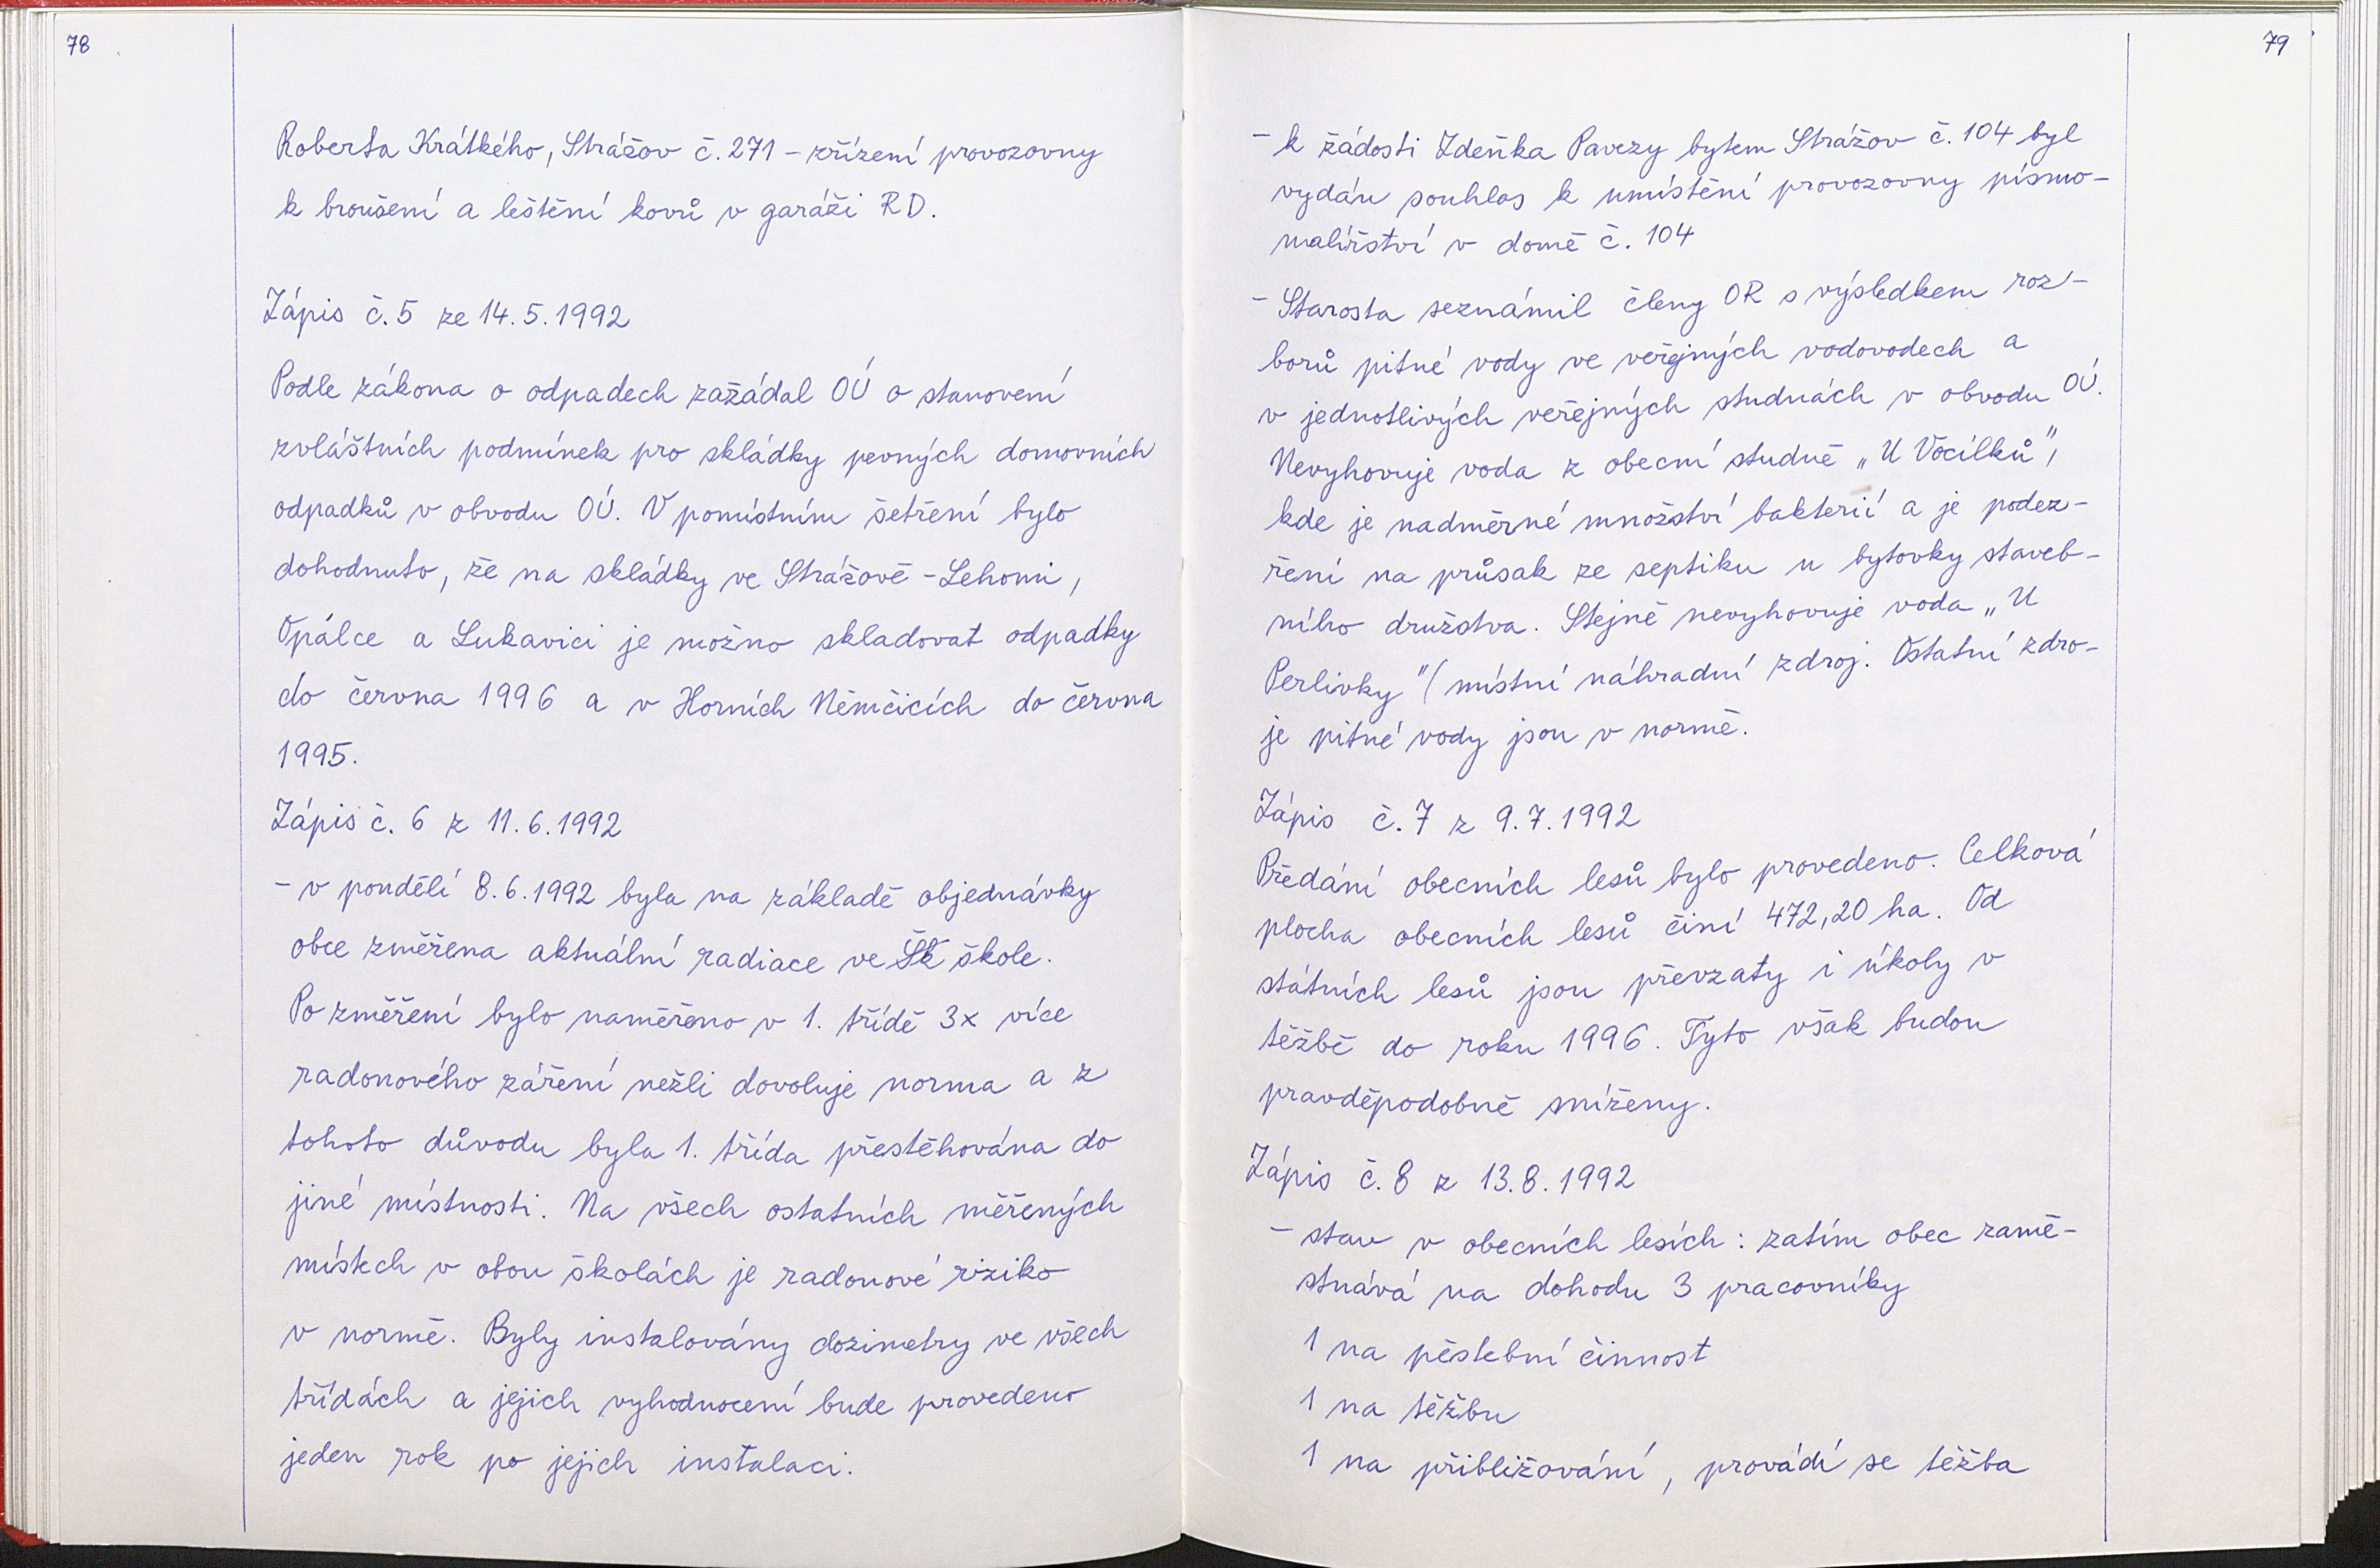 78
Roberta Krátkého, Strážov č. 271 – zřízení provozovny
k broušení a leštění kovů v garáži RD.
Zápis č. 5 ze 14. 5. 1992
Podle zákona o odpadech zažádal OÚ o stanovení
zvláštních podmínek pro skládky pevných domovních
odpadků v obvodu OÚ. V pomístním šetření bylo
dohodnuto, že na skládky ve Strážově - Lehomi,
Opálce a Lukavici je možno skladovat odpadky
do června 1996 a v Horních Němčicích do června
1995.
Zápis č. 6 z 11. 6. 1992
- v pondělí 8. 6. 1992 byla na základě objednávky
obce změřena aktuální radiace ve škole.
Po změření bylo naměřeno v 1. třídě 3x více
radonového záření nežli dovoluje norma a z
tohoto důvodu byla 1. třída přestěhována do
jiné místnosti. Na všech ostatních měřených
místech v obou školách je radonové riziko
v normě. Byly instalovány dozimetry ve všech
třídách a jejich vyhodnocení bude provedeno
jeden rok po jejich instalaci.
79
- k žádosti Zdeňka Pavezy bytem Strážov č. 104 byl
vydán souhlas k umístění provozovny písmo-
malířství v domě č. 104
- Starosta seznámil členy OR s výsledkem roz-
borů pitné vody ve veřejných vodovodech a
v jednotlivých veřejných studnách v obvodu OÚ.
Nevyhovuje voda z obecní studně „U Vöcílků",
kde je nadměrné množství bakterií a je podez-
ření na průsak ze septiku u bytovky staveb-
ního družstva. Stejně nevyhovuje voda „U
Perlivky" (místní náhradní zdroj. Ostatní zdro-
je pitné vody jsou v normě.
Zápis č. 7 z 9. 7. 1992
Předání obecních lesů bylo provedeno. Celková
plocha obecních lesů činí 472,20 ha. Od
státních lesů jsou převzaty i úkoly v
těžbě do roku 1996. Tyto však budou
pravděpodobně sníženy.
Zápis č. 8 z 13. 8. 1992
- stav v obecních lesích : zatím obec zamě-
stnává na dohodu 3 pracovníky
1 na pěstební činnost
1 na těžbu
1 na přibližování, provádí se těžba